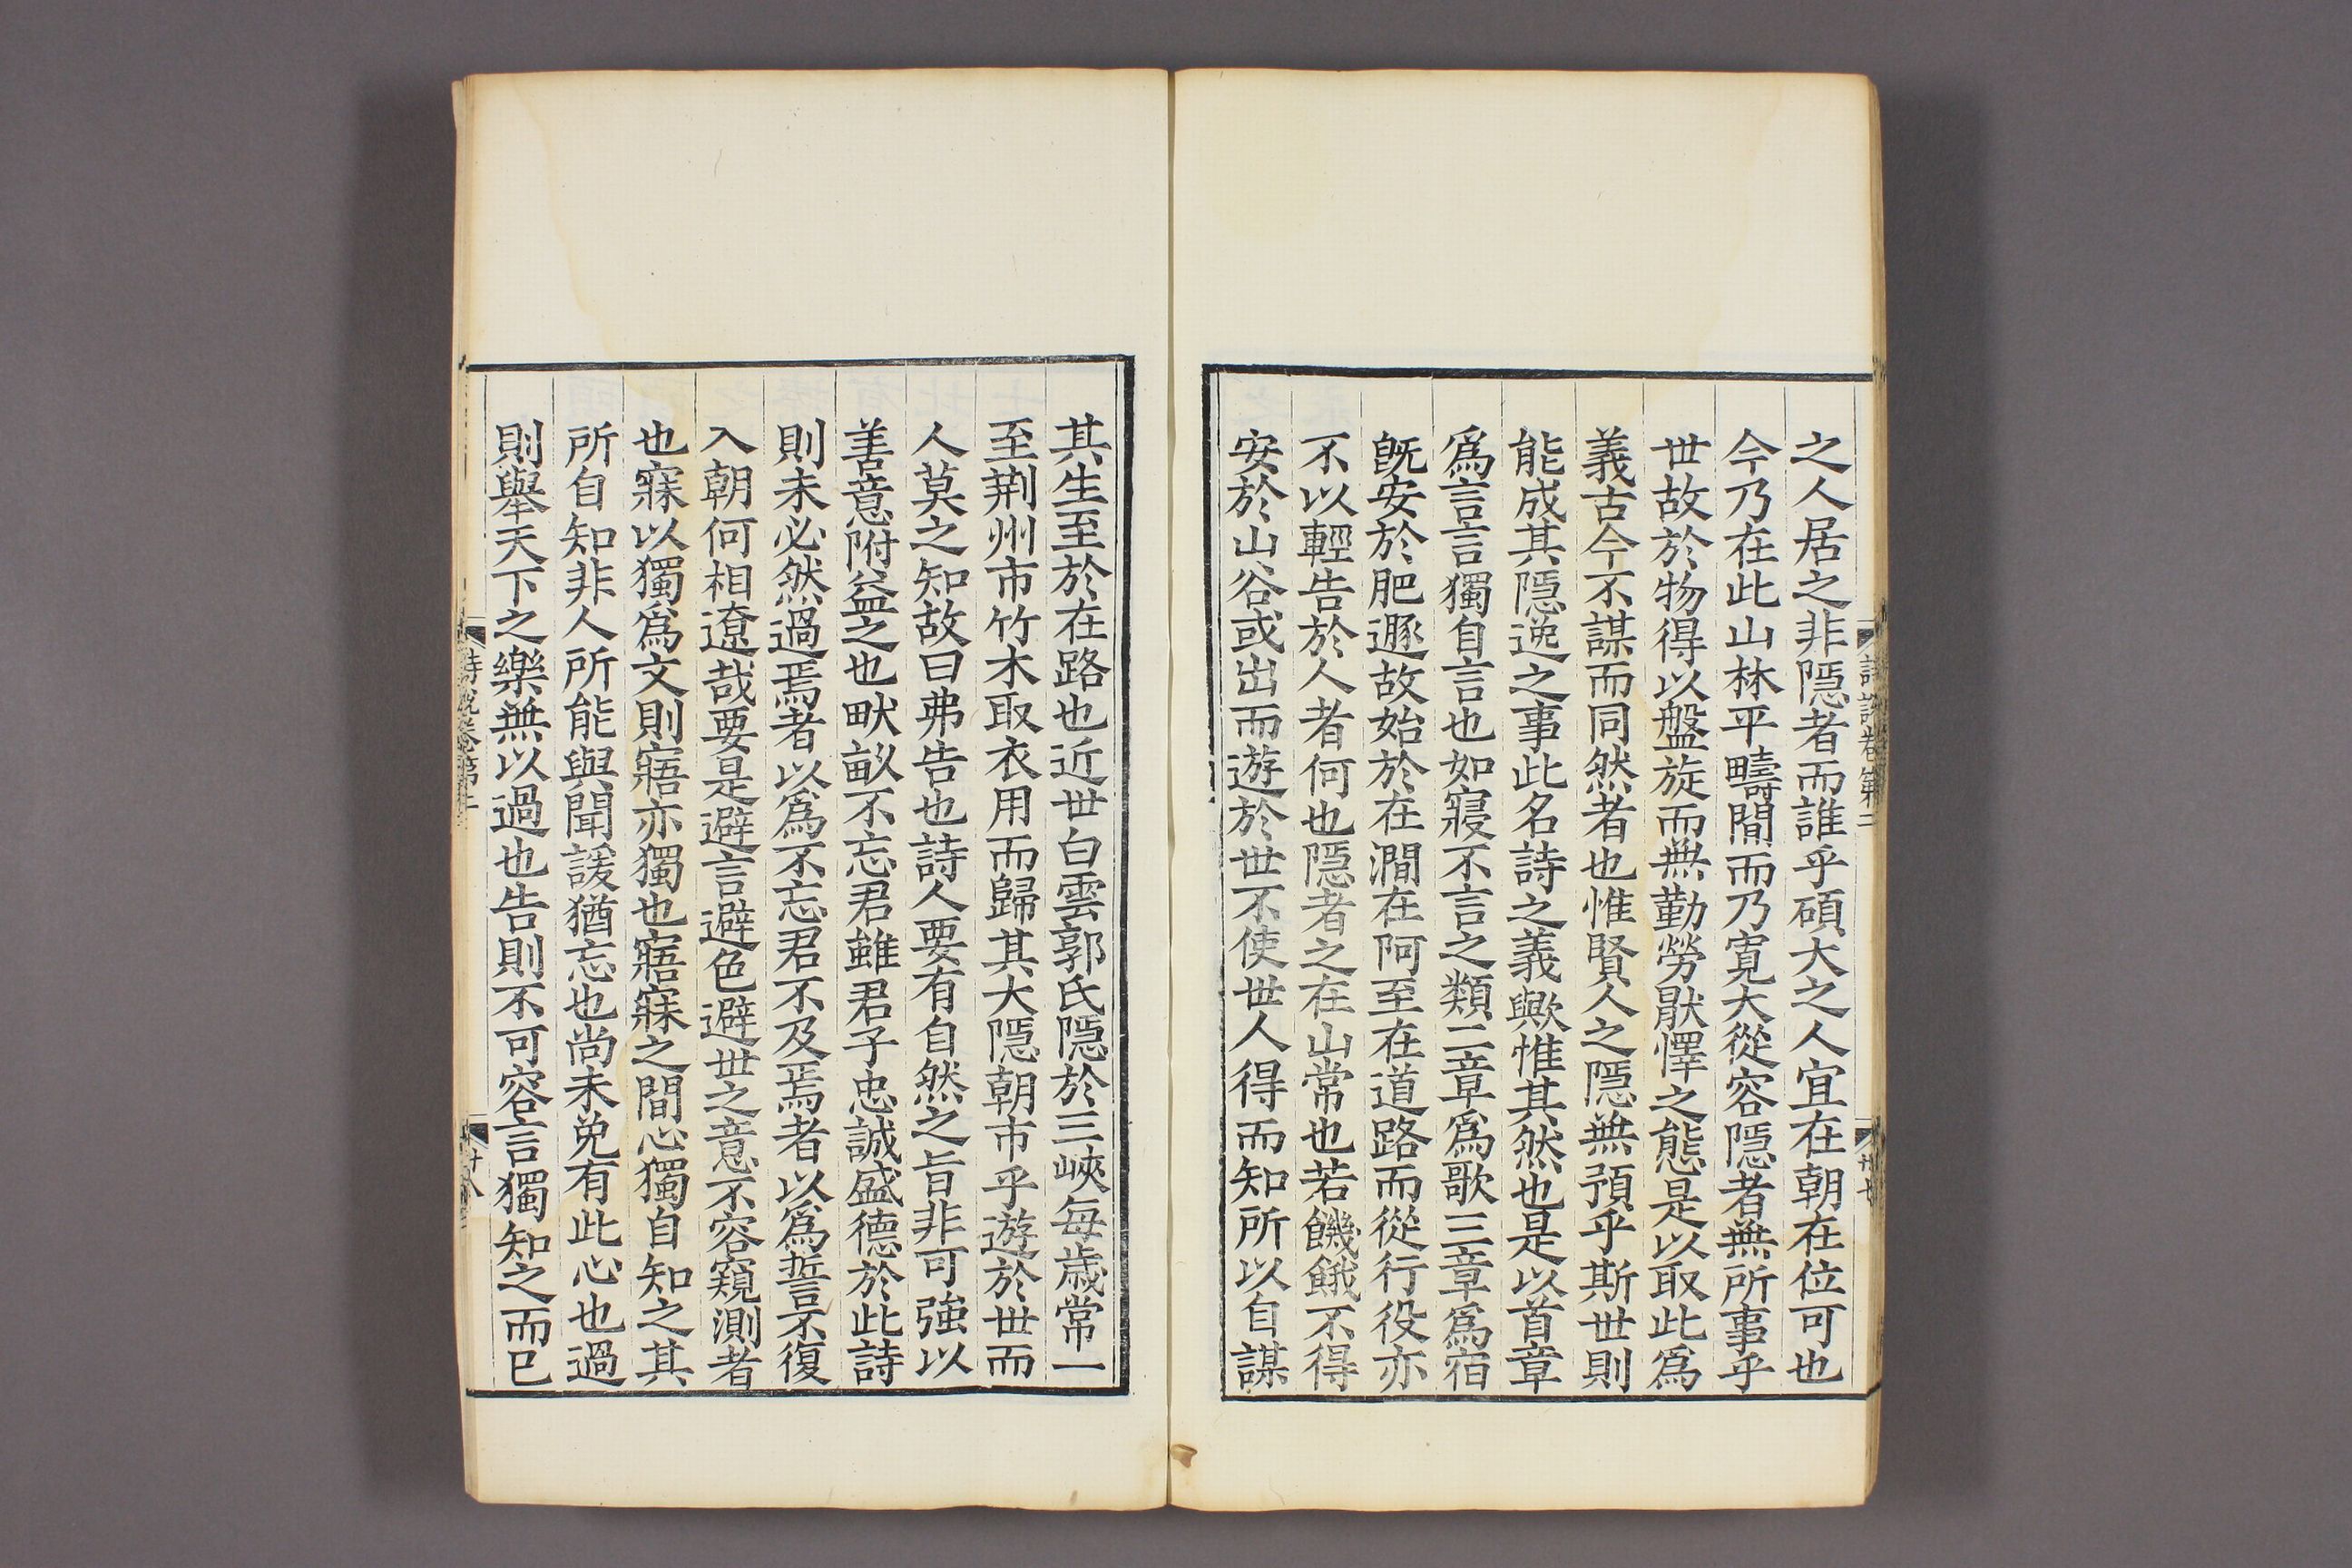 之人居之非隱者而誰乎碩大之人宜在朝在位可也
今乃在此山林平疇間而乃寬大從容隱者無所事乎
世故於物得以盤旋而無勤勞厭懌之態是以取此爲
義古今不謀而同然者也惟賢人之隱無預乎斯世則
能成其隱逸之事此名詩之義歟惟其然也是以首章
爲言言獨自言也如寢不言之類二章爲歌三章爲宿
旣安於肥遯故始於在澗在阿至在道路而從行役亦
不以輕告於人者何也隱者之在山常也若饑餓不得
安於山谷或出而遊於世不使世人得而知所以自謀
詩說卷第二
廿七
其生至於在路也近世白雲郭氏隱於三峽每歲常一
至荆州市竹木取衣用而歸其大隱朝市乎遊於世而
人莫之知故曰弗告也詩人要有自然之旨非可強以
善意附益之也畎畝不忘君雖君子忠誠盛德於此詩
則未必然過焉者以爲不忘君不及焉者以爲誓不復
入朝何相遼哉要是避言避色避世之意不容窺測者
也寐以獨爲文則寤亦獨也寤寐之間心獨自知之其
所自知非人所能與聞諼猶忘也尚未免有此心也過
則舉天下之樂無以過也告則不可容言獨知之而已
詩說卷第二